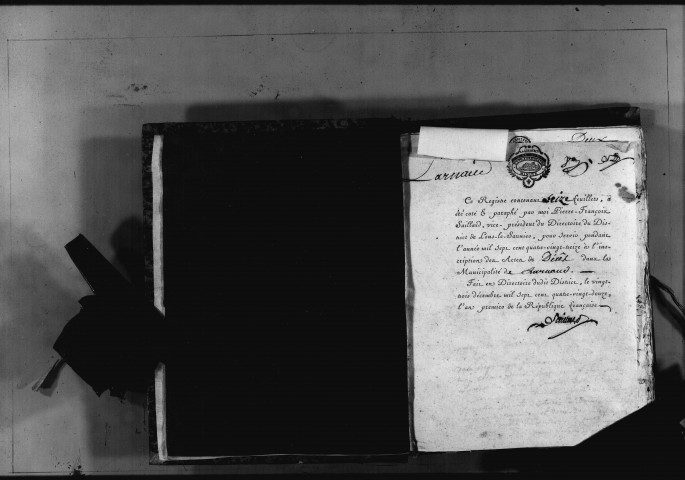 Deux
Larnaud
Ce Registre contenant seize feuillets, a
été coté & paraphé par moi Pierre-François
Saillard, vice-président du Directoire du Dis-
trict de Lons-le-Saunier, pour servir pendant
l'année mil sept cent quatre-vingt-treize à l'ins-
criptions des Actes de Décès dans la
Municipalité de Larnaud. —
Fait en Directoire dudit District, le vingt-
décembre mil sept cent quatre-vingt-douze,
l'an premier de la République française —